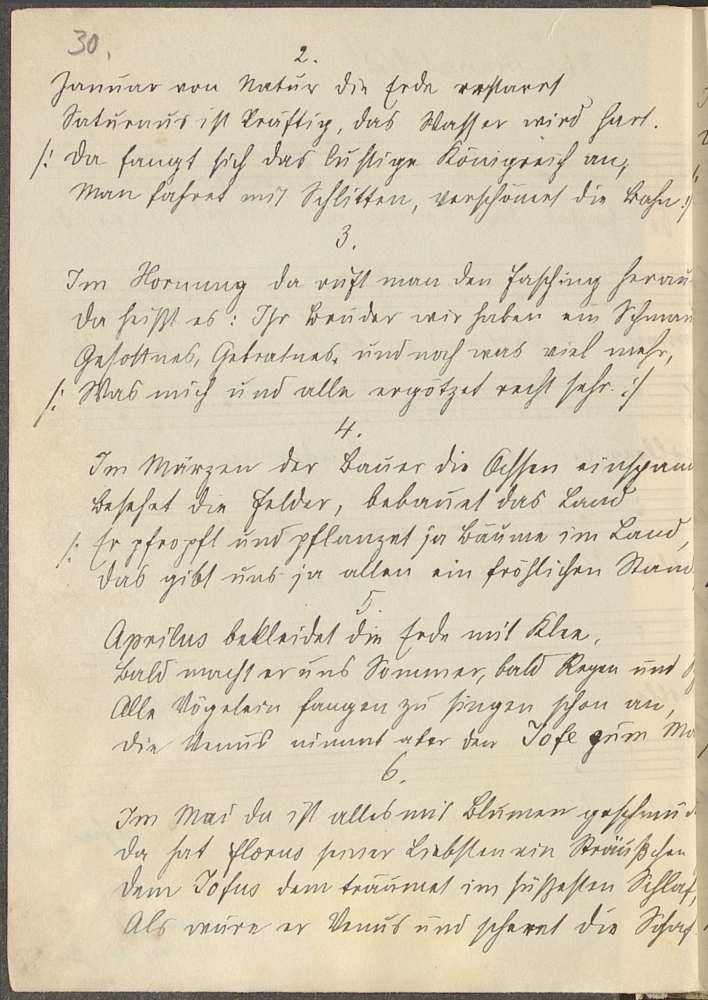 30.
2.
Januar von Natur die Erde erstarrt
Saturnus ist kräftig, das Wasser wird hart.
/: Da fangt sich das lustige Königreich an,
Man fahret mit Schlitten, verschönert die Bahn :/
3.
Im Hornung da ruft man den Fasching herau
Da heißt es: Ihr Brüder wir haben ein Schmau
Gesottnes, Gebratnes, und noch was viel mehr,
/: Was mich und alle ergötzet recht sehr. :/
4.
Im Märzen der Bauer die Ochsen einspan
besehet die Felder, bebauet das Land
/: Er pfropft und pflanzet ja Bäume im Land,
Das gibt uns ja allen ein fröhlichen Stand
5.
Aprilus bekleidet die Erde mit Klee,
Bald macht er uns Sommer, bald Regen und
Alle Vögelein fangen zu singen schon an,
Die Venus nimmt aber den Jofe zum Ma
6.
Im Mai da ist alles mit Blumen geschmü
Da hat Florus seiner Liebsten ein Sträußchen
Dem Jofus dem träumet im süßesten Schlaf,
Als wäre er Venus und scheret die Schaf